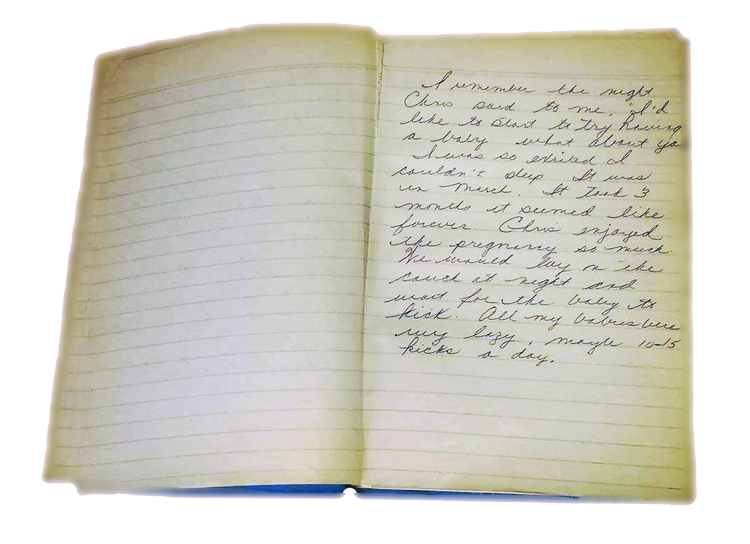 I remember the night
Chris said to me, "I'd
like to start to try having
a baby what about yo
I was so exited I
couldn't sleep. It was
in March. It took 3
months it seemed like
forever. Chris enjoyed
the pregnancy so much.
We would lay on the
couch at night and
wait for the baby to
kick. All my babies were
very lazy, maybe 10-15
kicks a day.